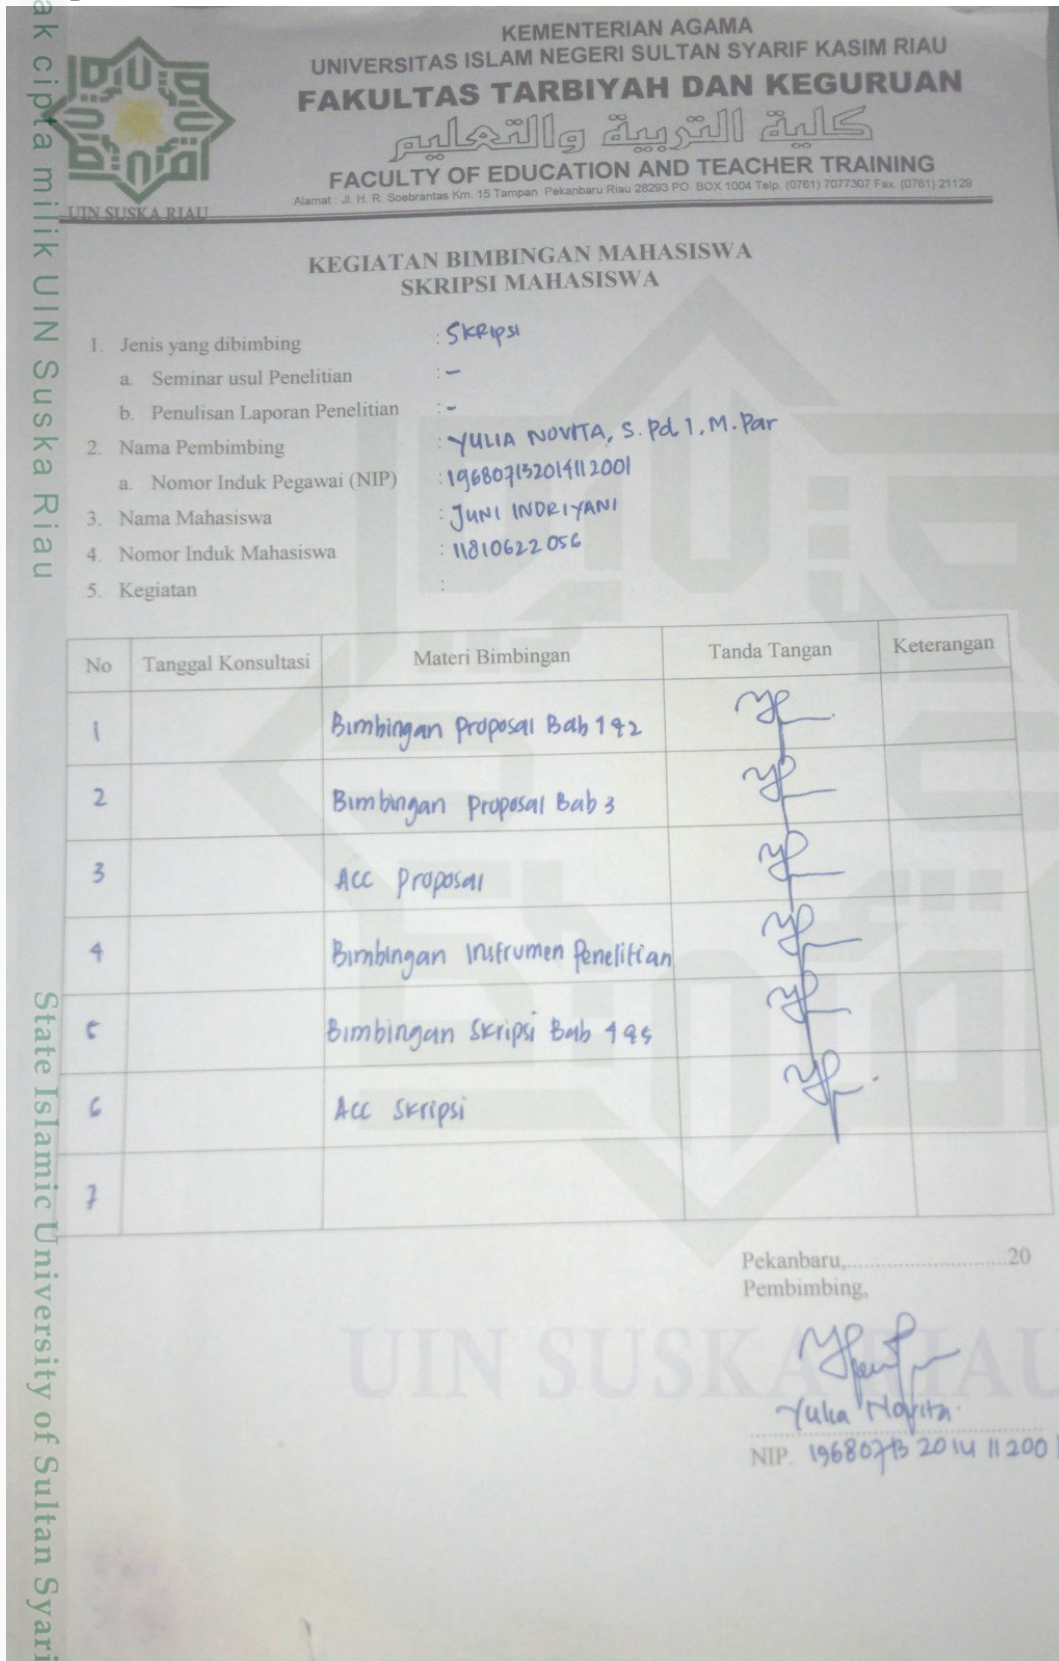 ak cipta milik UIN Suska Riau
State Islamic University of Sultan Syari
UIN SUSKA RIAU
KEMENTERIAN AGAMA
UNIVERSITAS ISLAM NEGERI SULTAN SYARIF KASIM RIAU
FAKULTAS TARBIYAH DAN KEGURUAN
كلية التربية والتعليم
FACULTY OF EDUCATION AND TEACHER TRAINING
Alamat : Jl. H. R. Soebrantas Km. 15 Tampan Pekanbaru Riau 28293 PO. BOX 1004 Telp. (0761) 7077307 Fax. (0761) 21129
KEGIATAN BIMBINGAN MAHASISWA
SKRIPSI MAHASISWA
1. Jenis yang dibimbing : SKRIPSI
a. Seminar usul Penelitian : -
b. Penulisan Laporan Penelitian : -
2. Nama Pembimbing : YULIA NOVITA, S. Pd. I. M. Par
a. Nomor Induk Pegawai (NIP) : 196807132014112001
3. Nama Mahasiswa : JUNI INDRIYANI
4. Nomor Induk Mahasiswa : 11810622056
5. Kegiatan :
No Tanggal Konsultasi Materi Bimbingan Tanda Tangan Keterangan
1 Bimbingan Proposal Bab 1 & 2
2 Bimbingan Proposal Bab 3
3 Acc Proposal
4 Bimbingan Instrumen Penelitian
5 Bimbingan Skripsi Bab 4 & 5
6 Acc Skripsi
7
Pekanbaru,............................20
Pembimbing,
UIN SUSKA RIAU
Yulia Novita
NIP. 19680713 2014 11 2001